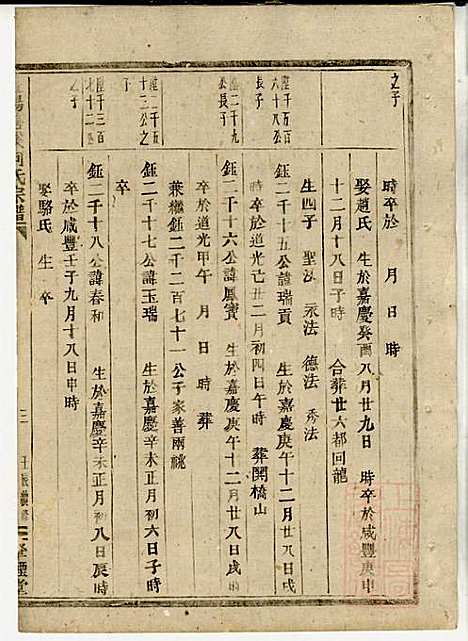 之子
時卒於 月 日 時
娶趙氏 生於嘉慶癸酉八月廿九日 時卒於咸豐庚申
十二月十八日子時 合葬廿六都回龍
生四子 聖法 永法 德法 秀法
千五百
六十八公
長子
鈺二千十五公諱瑞貢 生於嘉慶庚午十二月廿八日戌
時卒於道光 丑二月初四日午時 葬関橋山
二千九
公長子
鈺二千十六公諱鳳賓 生於嘉慶庚午十二月廿八日戌時
卒於道光甲午 月 日 時 葬
兼繼鈺二千二百七十一公子家善兩祧
二千五
十三公之
子
鈺二千十七公諱玉瑞 生於嘉慶辛未正月初六日子時
卒
千三百
七十二公
之子
鈺二千十八公諱春和 生於嘉慶辛未正月初八日辰時
卒於咸豐壬子九月十八日申時
娶駱氏 生 卒
何氏宗譜